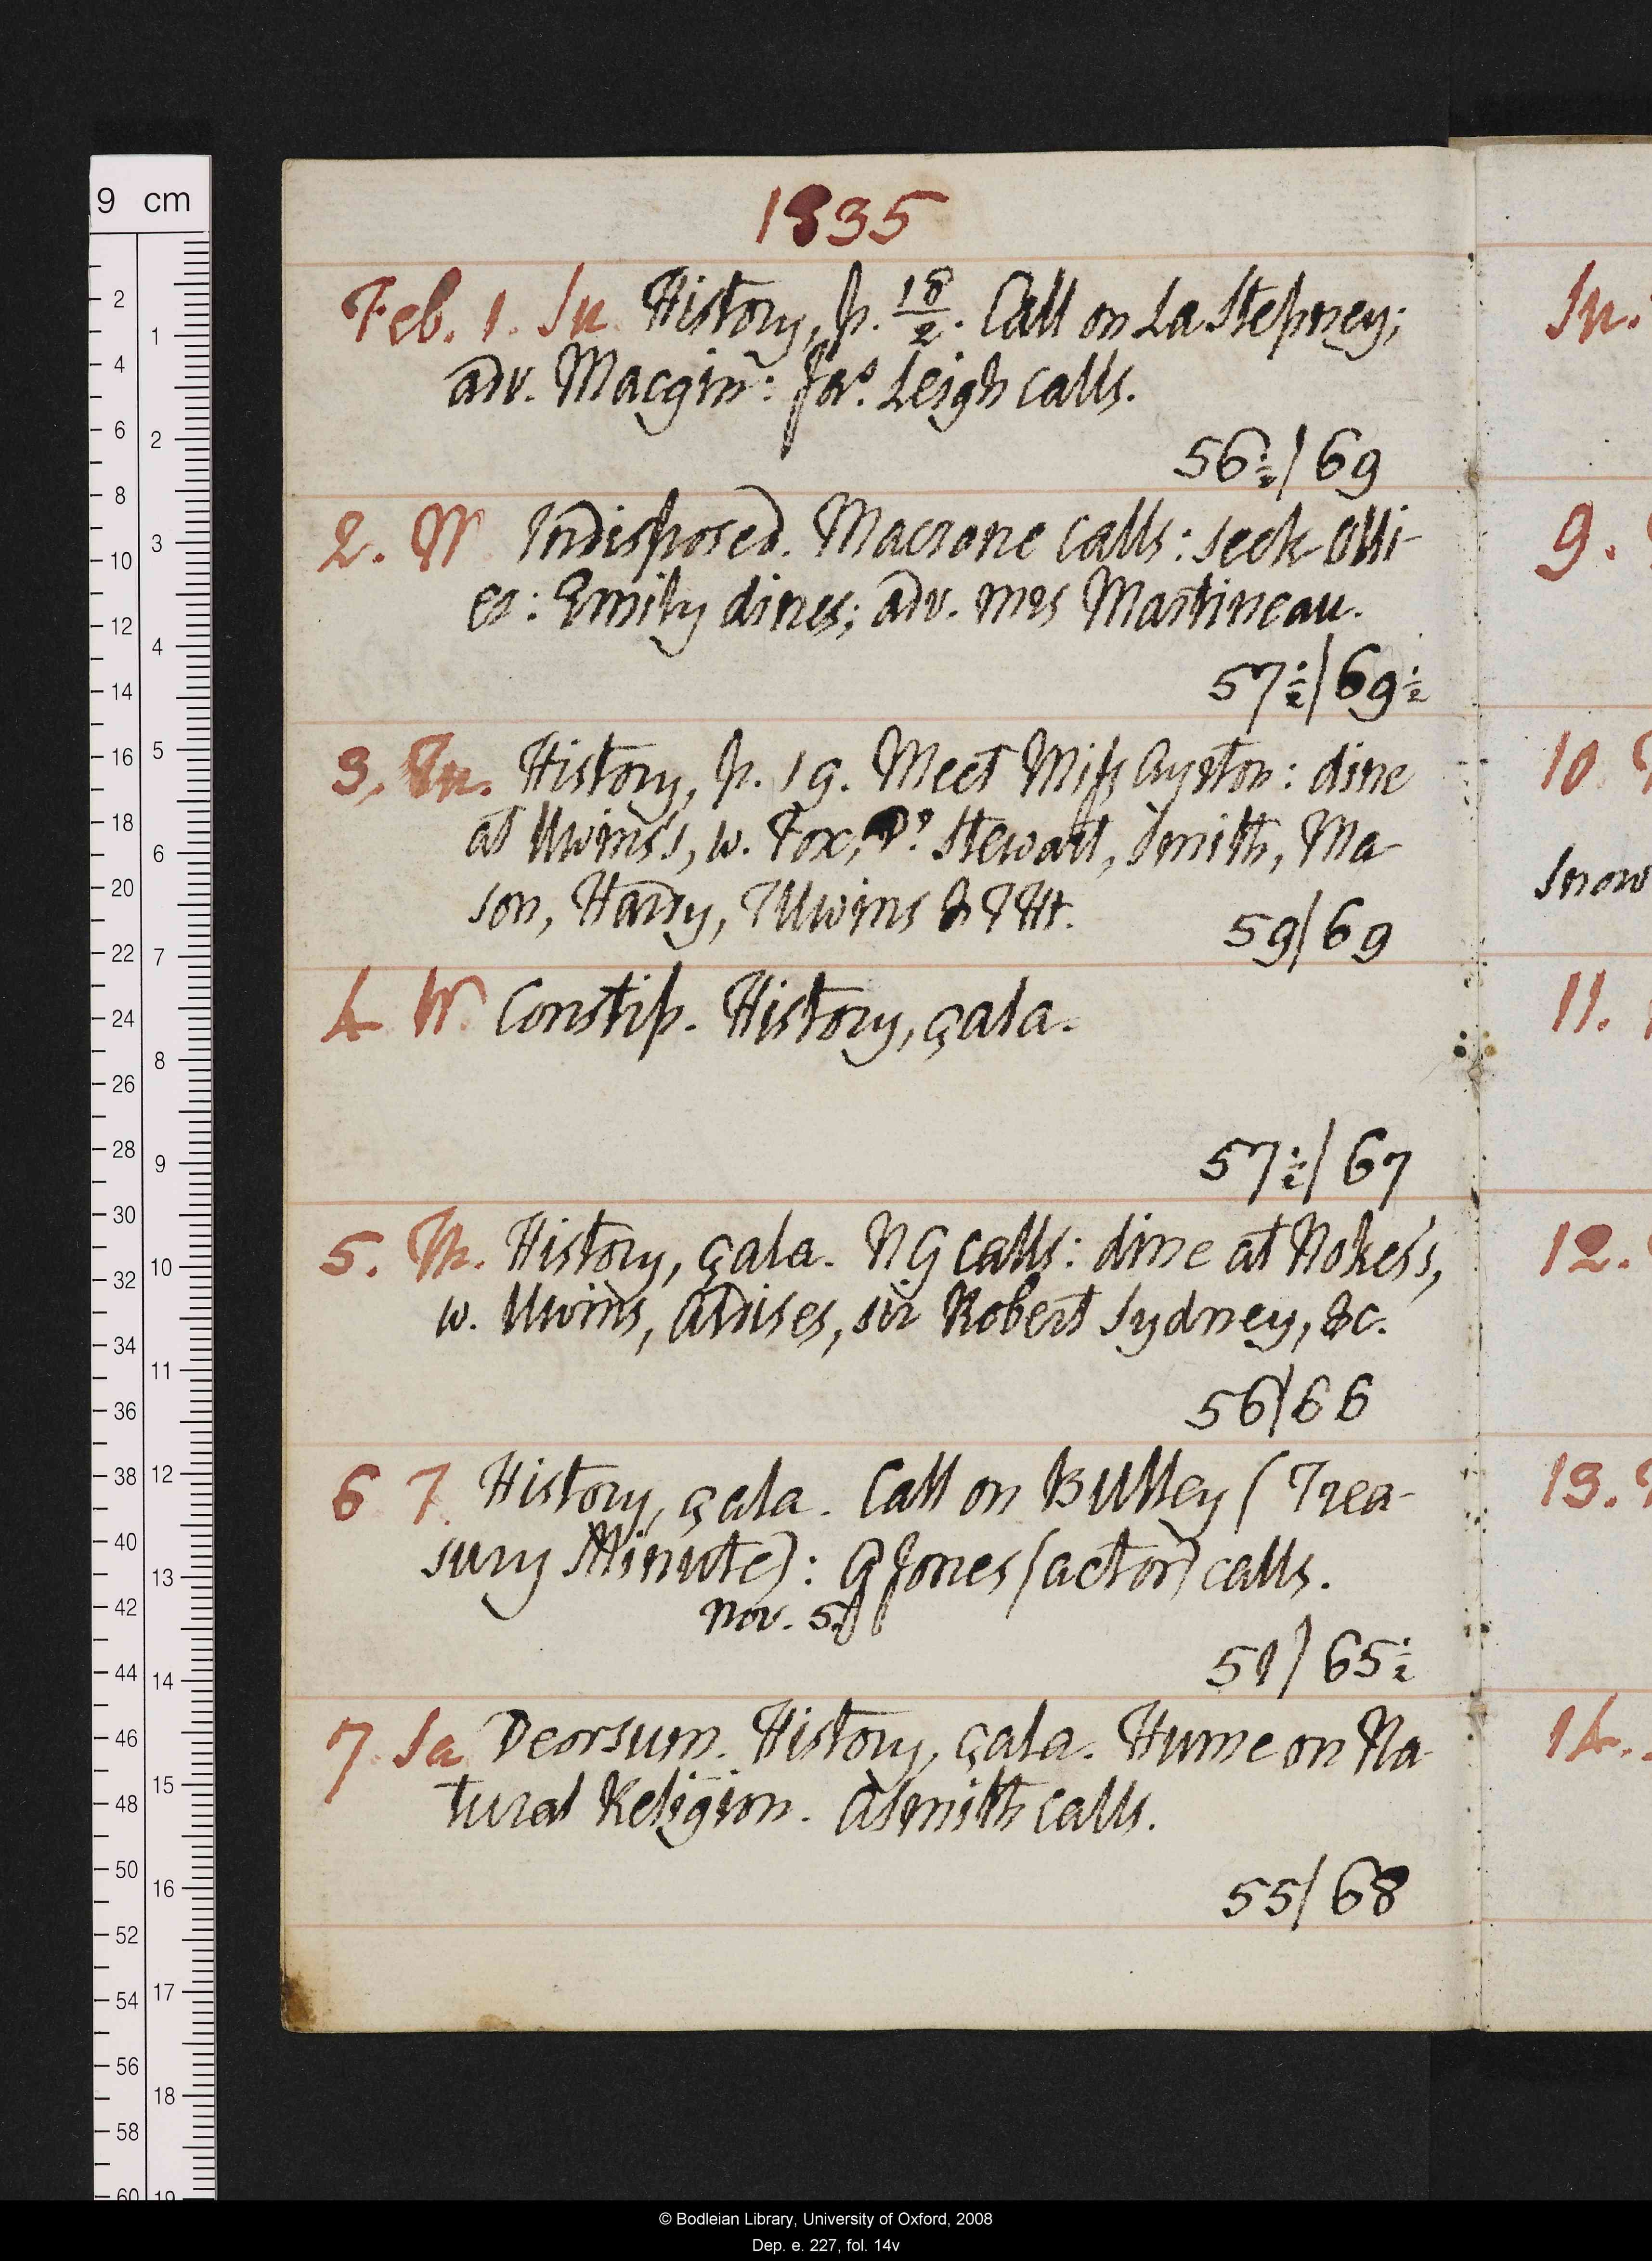 1835
Feb. 1. Su. History, p. 18/2. Call on La Stepney;
adv. Macgin: Jas. Leigh calls.
56½/69
2. M. Indisposed. Macrone calls: seek Olli-
er: Emily dines; adv. mrs Martineau.
57½/69½
3. Tu. History, p. 19. Meet Miss Ayrton: dine
at Uwins's, w. Fox, Dr. Stewart, Smith, Ma-
son, Hardy, TUwins & THt.
59/69
4. W. Constip. History, çala.
57½/67
5. Th. History, çala. NG calls: dine at Nokes's,
w. Uwins, Aldises, sir Robert Sydney, &c.
56/66
6 F. History, çala. Call on Bulley (Trea-
sury Minute): GJones (actor) calls.
Nov. 5.
51/65½
7. Sa Deorsum. History, çala. Hume on Na-
tural Religion. ASmith calls.
55/68
Su.
9.
10.
Snow
11.
12.
13.
14.
9 cm
2
4
6
8
10
12
14
16
18
20
22
24
26
28
30
32
34
36
38
40
42
44
46
48
50
52
54
56
58
60
1
2
3
4
5
6
7
8
9
10
11
12
13
14
15
16
17
18
19
© Bodleian Library, University of Oxford, 2008
Dep. e. 227, fol. 14v